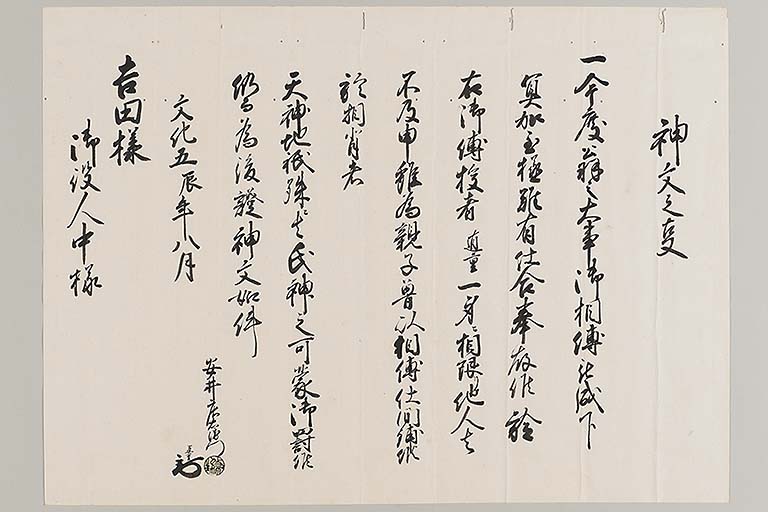 神文之事
一今度 大事御相傳被成下
冥加至極難有仕合奉存候 然
右御傳授者 一身ニ相限他人者
不及申雖為親子曽以相傳仕間鋪候
於相背者
天神地祇殊者氏神之可蒙御罸候
仍而為後證神文如件
文化五辰年八月
安井
吉田様
御役人中様